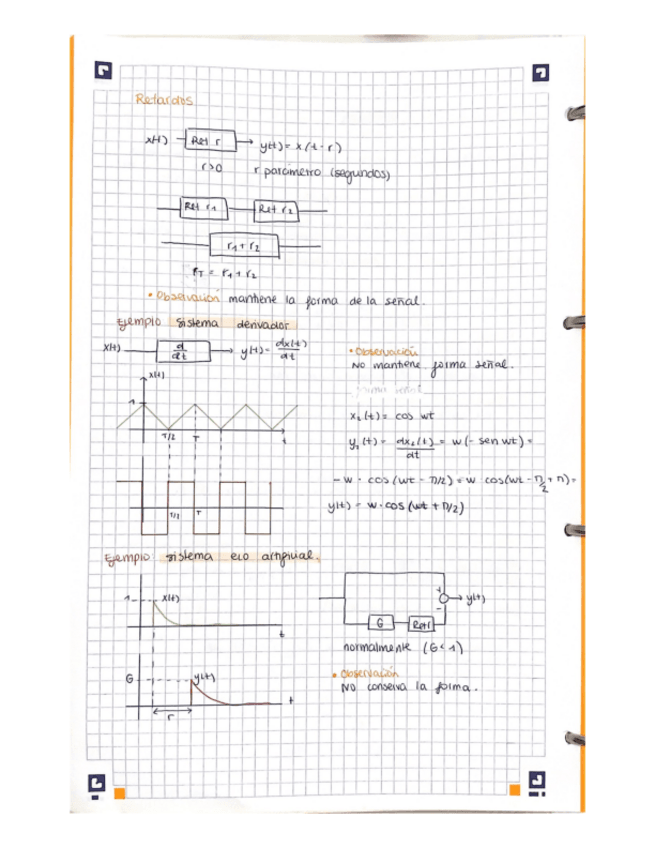 Retardos
x(t) Ret r y(t) = x(t-r)
r>0 r parámetro (segundos)
Ret r1 Ret r2
r1 + r2
rT = r1 + r2
• Observación mantiene la forma de la señal.
Ejemplo sistema derivador
x(t) d/dt y(t) = dx(t)/dt
• Observación
No mantiene forma señal.
x(t)
1
T/2 T t
x2(t) = cos wt
y2(t) = dx2(t)/dt = w(-sen wt) =
-w · cos (wt - π/2) = w cos(wt - π/2 + π) =
y(t) = w · cos (wt + π/2)
T/2 T
Ejemplo: sistema eco artificial.
1 x(t)
t
G Ret r + - y(t)
normalmente (G<1)
G y(t)
t
r
• Observación
No conserva la forma.